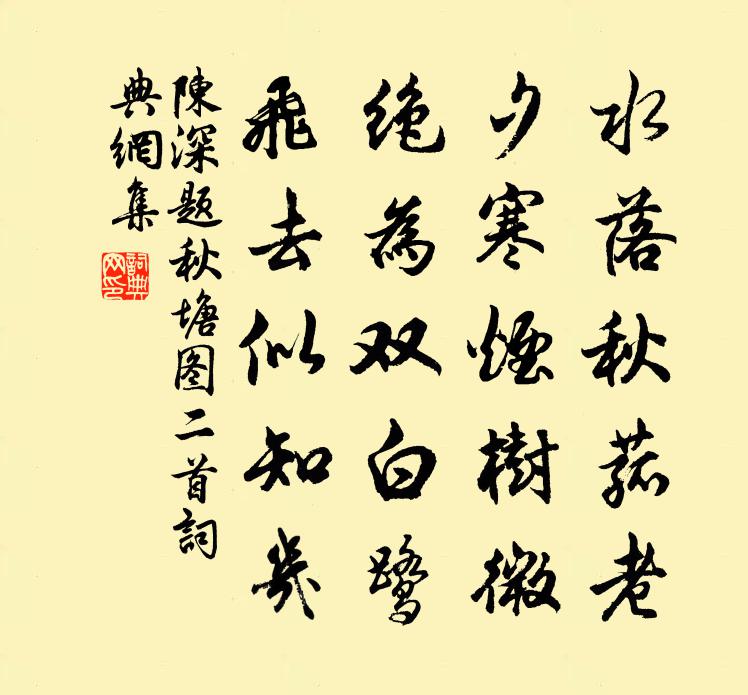 水落秋菰老
夕寒煙樹微
絶為双白鷺
飛去似知幾
陳深题秋塘图二首詞
典網集
詞典
网印